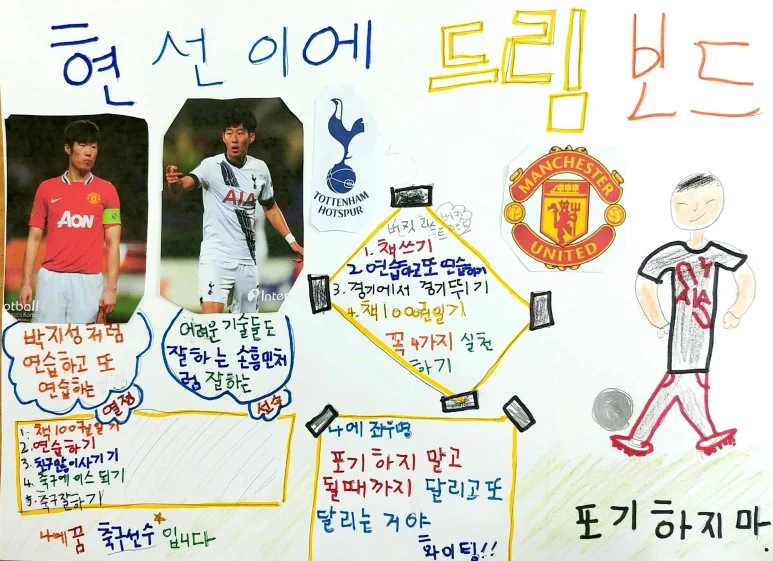 현선이에 드림 보드
AON
AIA
TOTTENHAM
HOTSPUR
MANCHESTER
UNITED
버킷 리스트
1. 책쓰기
2. 연습하고 또 연습하기
3. 경기에서 경기뛰기
4. 책 100권 읽기
꼭 4가지 실천
하기
otball
Inter
박지성처럼
연습하고 또
연습하는
열정
어려운 기술들도
잘하는 손흥민처
럼 잘하는
선수
1. 책 100권 읽기
2. 연습하기
3. 친구많이사기기
4. 축구에 이스 되기
5. 축구잘하기
나에꿈 축구선수 입니다
나에 좌우명
포기하지 말고
될때까지 달리고 또
달리는 거야
화이팅!!
AIA
포기하지마.